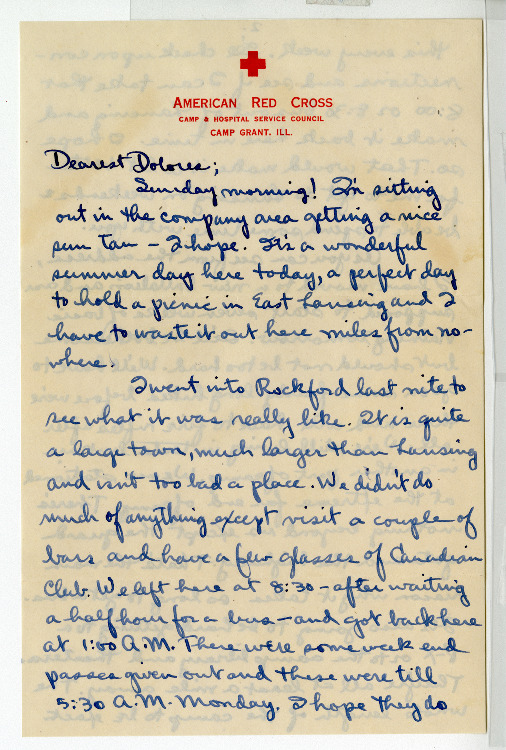 AMERICAN RED CROSS
CAMP & HOSPITAL SERVICE COUNCIL
CAMP GRANT, ILL.
Dearest Dolores;
Sunday morning! I'm sitting
out in the company area getting a nice
sun tan – I hope. It's a wonderful
summer day here today, a perfect day
to hold a picnic in East Lansing and I
have to waste it out here miles from no-
where.
I went into Rockford last nite to
see what it was really like. It is quite
a large town, much larger than Lansing
and isn't too bad a place. We didn't do
much of anything except visit a couple of
bars and have a few glasses of Canadian
Club. We left here at 8:30 – after waiting
a half hour for a bus – and got back here
at 1:00 A.M. There were some week end
passes given out and these were till
5:30 A.M. Monday. I hope they do